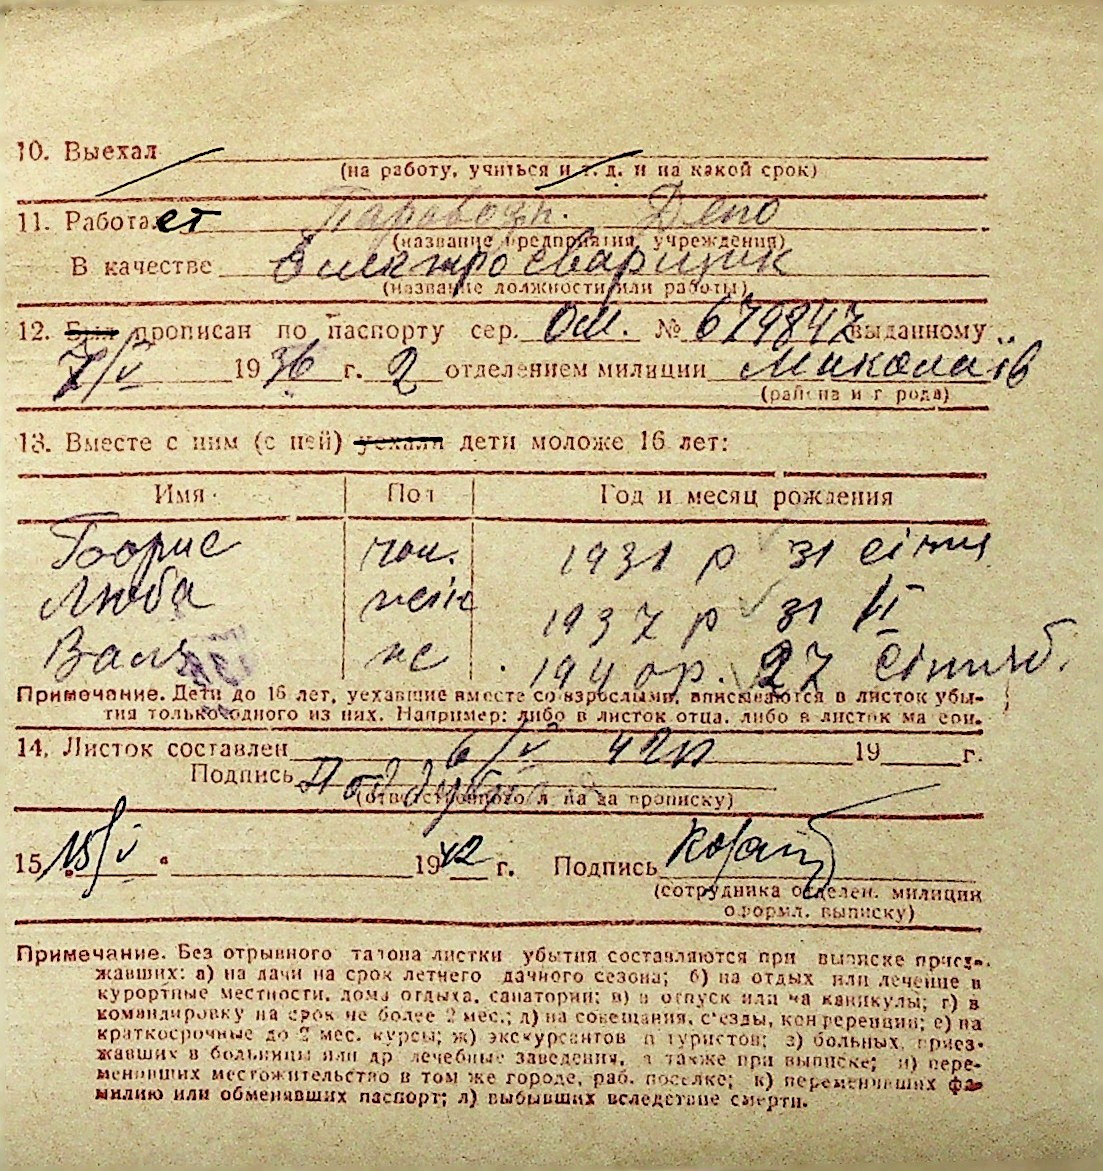 10. Выехал
(на работу, учиться и т. д. и на какой срок)
11. Работает Паровозн. Депо
(название предприятия, учреждения)
В качестве Електросварщик
(название должности или работы)
12. Был прописан по паспорту сер. ОМ. № 679847 выданному
7/V 1936 г. 2 отделением милиции Миколаїв
(района и г рода)
13. Вместе с ним (с ней) уехали дети моложе 16 лет:
Имя Пол Год и месяц рождения
Борис чол. 1931 р 31 січня
Люба жін 1937 р 31 II
Валя ж 1940 р. 27
Примечание. Дети до 16 лет, уехавшие вместе со взрослыми, вписываются в листок убы-
тия только одного из них. Например: либо в листок отца, либо в листок ма ери.
14. Листок составлен 6/V 42 р 19 г.
Подпись Поддубна
(ответственного л на за прописку)
15 15/V 1942 г. Подпись
(сотрудника отделен. милиции
оформл. выписку)
Примечание. Без отрывного талона листки убытия составляются при выписке приез-
жавших: а) на дачи на срок летнего дачного сезона; б) на отдых или лечение в
курортные местности, дома отдыха, санатории; в) в отпуск или на каникулы; г) в
командировку на срок не более 2 мес.; д) на совещания, с'езды, конференции; е) на
краткосрочные до 2 мес. курсы; ж) экскурсантов и туристов; з) больных, приез-
жавших в больницы или др лечебные заведения, а также при выписке; и) пере-
менивших местожительство в том же городе, раб. поселке; к) переменивших фа-
милию или обменявших паспорт; л) выбывших вследствие смерти.